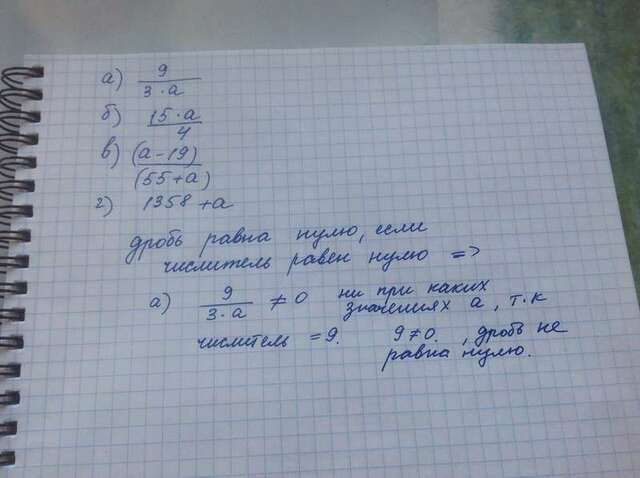 а) 9
3·а
б) 15·а
4
в) (а-19)
(55+а)
г) 1358+а
дробь равна нулю, если
числитель равен нулю =>
а) 9/3·а ≠ 0 ни при каких
значениях а, т.к
числитель = 9. 9≠0, дробь не
равна нулю.